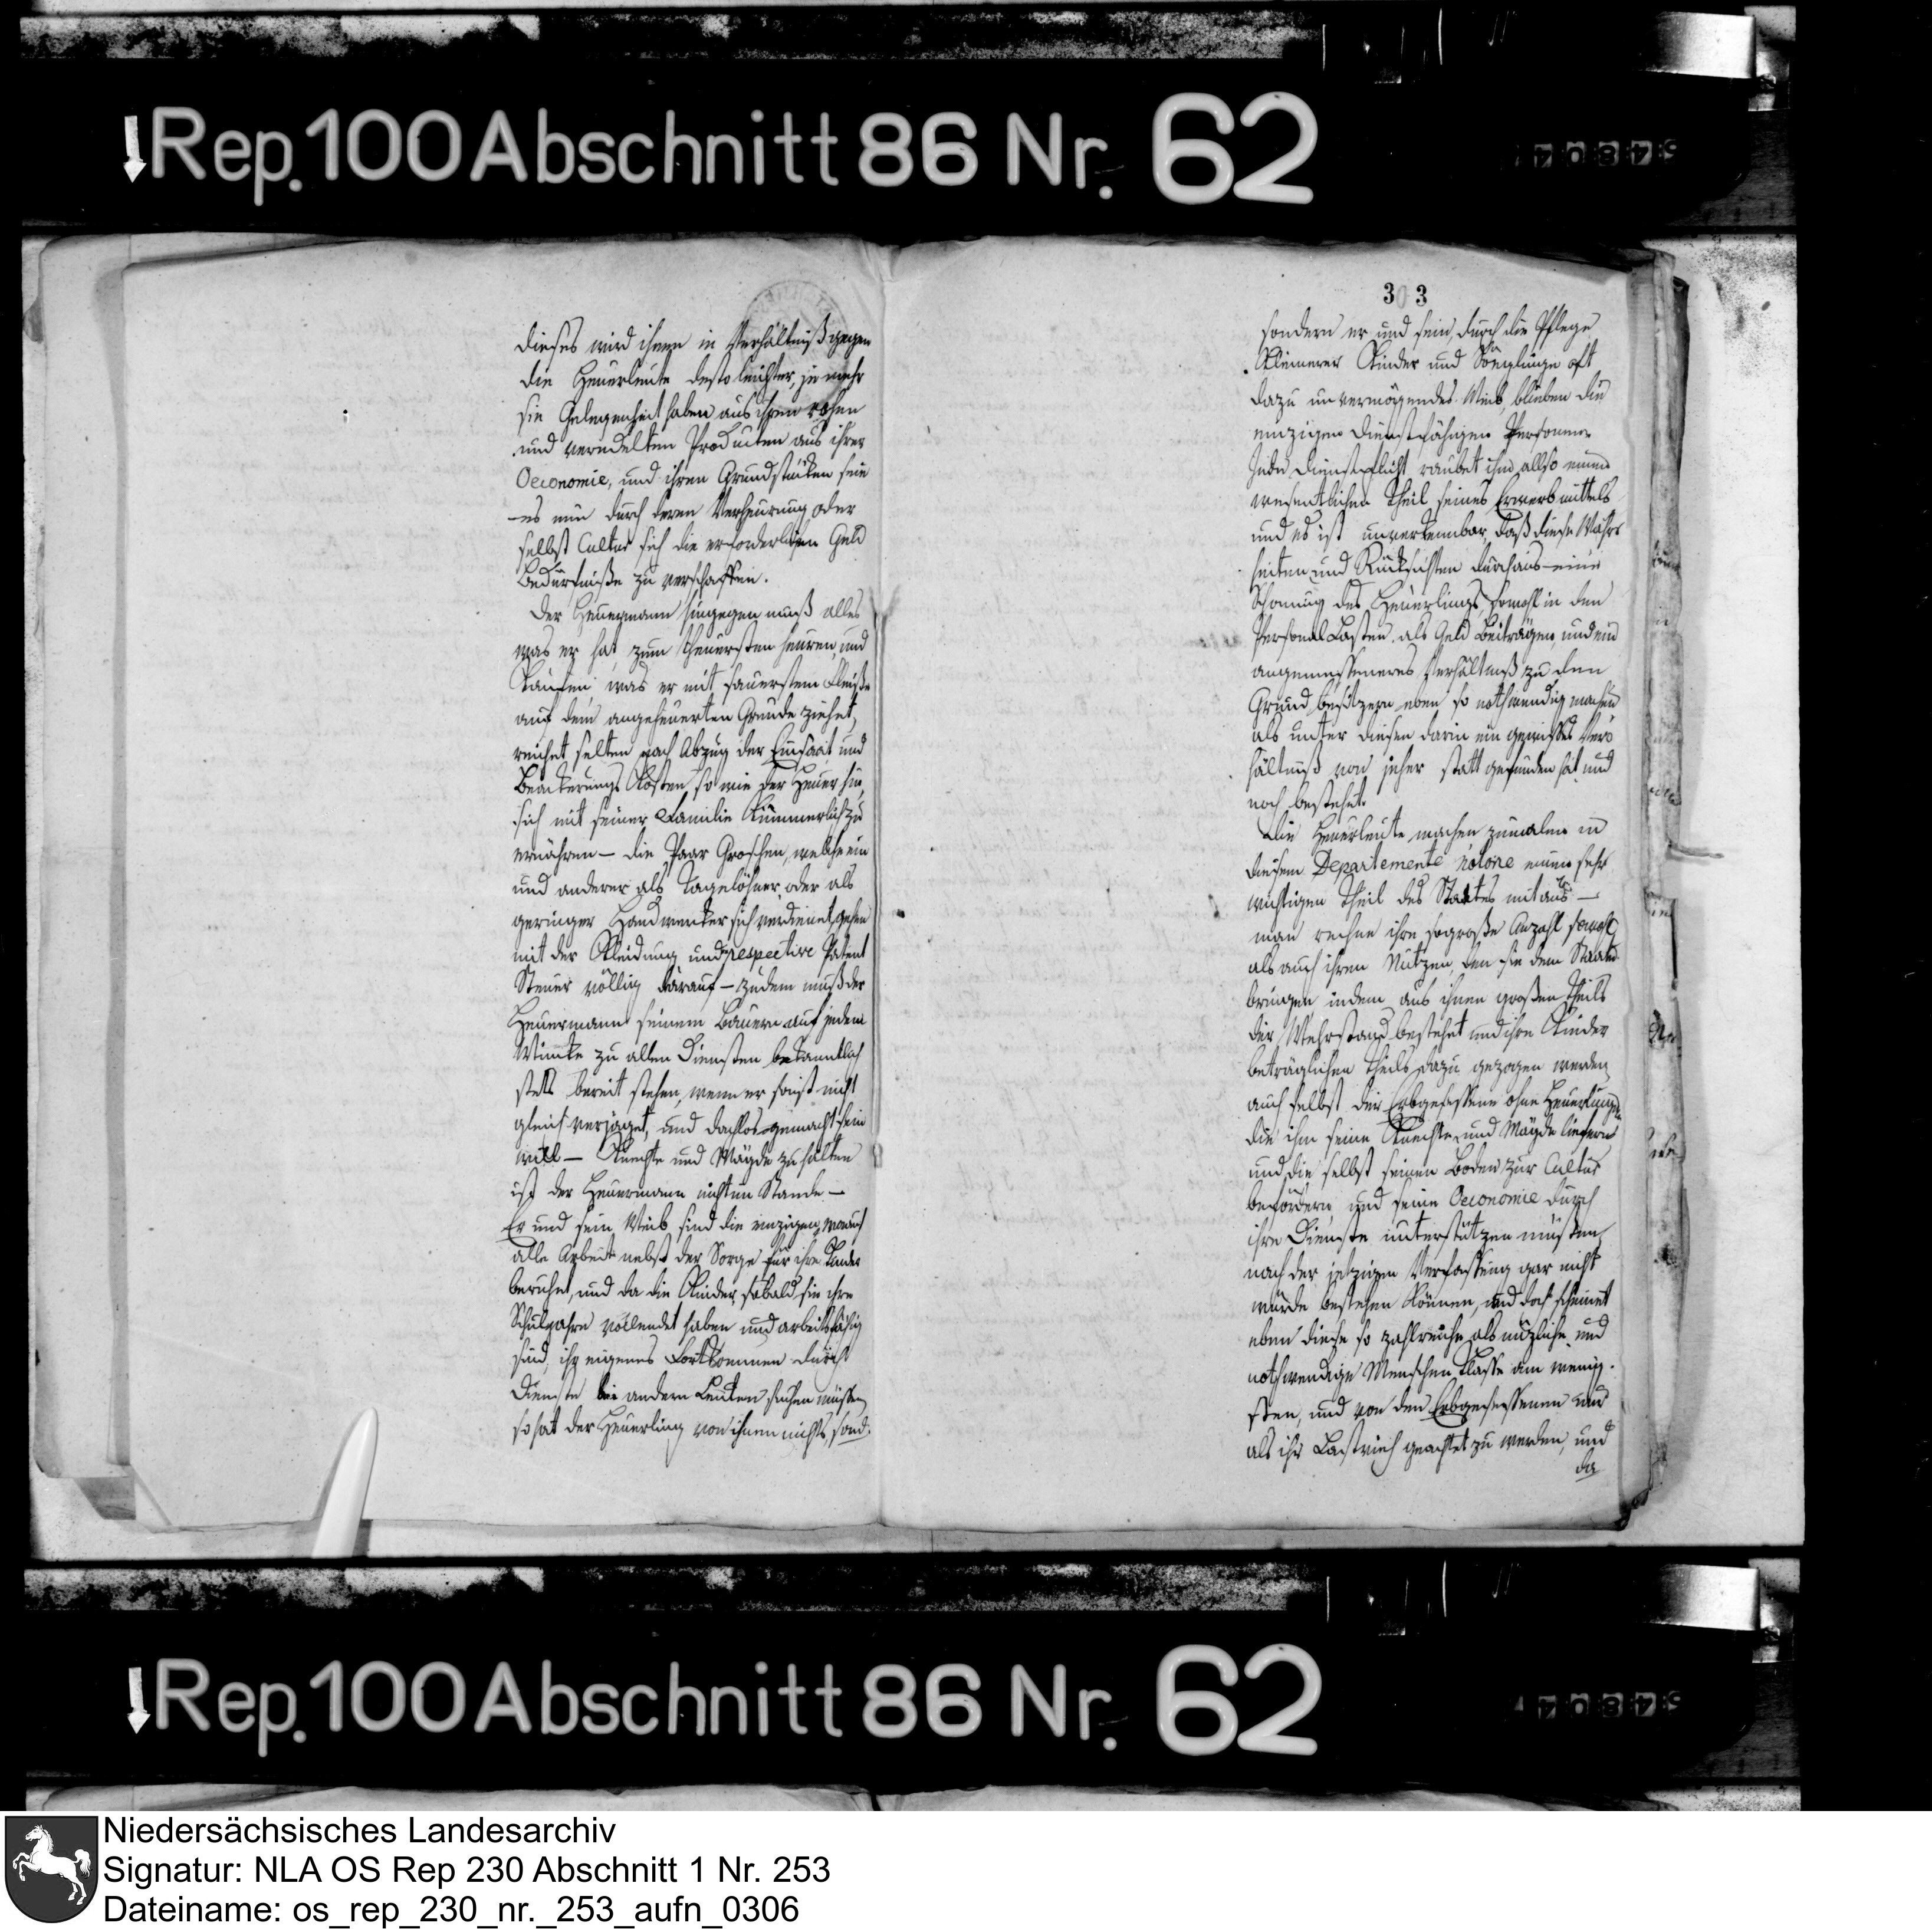 Rep. 100 Abschnitt 86 Nr. 62
dieses wird ihnen in Verhältniß gegen
die Heuerleute desto leichter, je mehr
sie Gelegenheit haben aus ihren rohen
und veredelten Producten aus ihrer
Oeconomie, und ihren Grundstücken sein
es nun durch deren Verheurung oder
selbst Cultur sich die erforderlichen Geld
Bedürfniße zu verschaffen.
Der Heuermann hingegen muß alles
was er hat, zum theuersten heuren, und
Kaufen, was er mit sauerstem Fleiße
auf dem angeheuerten Grunde ziehet,
reichet selten nach Abzug der Einsaat und
Beackerungs Kosten, so wie der Heuer hin,
sich mit seiner Familie Kümmerlich zu
ernähren — die Paar Groschen, welche ein
und anderer als Tagelöhner oder als
geringer Handwerker sich verdienet, gehen
mit der Kleidung und respective Patent
Steuer völlig darauf — zudem muß der
Heuermann seinem Bauern auf jedem
Wincke zu allen Diensten bekanntlich
stets bereit stehen, wenn er sonst nicht
gleich verjaget, und dachlos gemacht sein
will — Knechte und Mägde zu halten
ist der Heuermann nicht im Stande —
Er und sein Weib sind die einzigen, worauf
alle Arbeit nebst der Sorge für ihre Kinder
beruhet, und da die Kinder, sobald sie ihre
Schuljahre vollendet haben und arbeitsfähig
sind, ihr eigenes Fortkommen durch
Dienste bei andern Leuten suchen müssen,
so hat der Heuerling von ihnen nichts, sond.
303
sondern er und sein, durch die Pflege
Kleinerer Kinder und Säuglinge oft
dazu unvermögendes Weib, blieben die
einzigen dienstfähigen Personen.
Jede Dienstpflicht raubet ihm allso einen
wesentlichen Theil seines Erwerbmittels
und es ist unverkennbar, daß diese Wahr
heiten und Rücksichten durchaus eine
Schonung des Heuerlings, sowohl in den
Personal Lasten, als Geld Beiträgen, und ein
angemesseneres Verhältniß zu den
Grund besitzern eben so nothwendig machen
als unter diesen darin ein gewisses Ver
hältniß von jeher statt gefunden hat und
noch bestehet.
Die Heuerleute machen zumalen in
diesem Departemente notoire einen sehr
wichtigen Theil des Staates mit aus —
man rechne ihre so große Anzahl sowohl,
als auch ihren Nutzen, den sie dem Staate
bringen indem aus ihnen großen Theils
der Wehrstand bestehet und ihre Kinder
beträglichen Theils dazu gezogen werden
auch selbst der Erbgesessene ohne Heuerlinge
die ihm seine Knechte und Mägde liefern
und die selbst seinen Boden zur Cultur
befördern, und seine Oeconomie durch
ihre Dienste unterstützen müsten,
nach der jetzigen Verfassung gar nicht
würde bestehen können, und doch scheinet
eben diese so zahlreiche als nüzliche und
nothwendige Menschen Klasse am wenig.
sten, und von den Erbgesessenen nur
als ihr Lastvieh geachtet zu werden, und
da
Rep. 100 Abschnitt 86 Nr. 62
Niedersächsisches Landesarchiv
Signatur: NLA OS Rep 230 Abschnitt 1 Nr. 253
Dateiname: os_rep_230_nr._253_aufn_0306